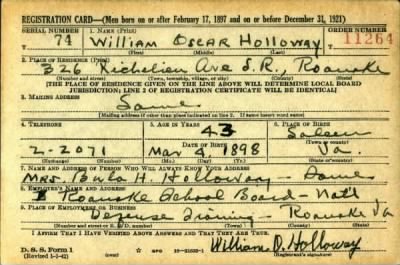 REGISTRATION CARD—(Men born on or after February 17, 1897 and on or before December 31, 1921)
SERIAL NUMBER 1. NAME (Print) ORDER NUMBER
74 William Oscar Holloway 11264
(First) (Middle) (Last)
2. PLACE OF RESIDENCE (Print)
326 Richelieu Ave S.R. Roanoke
(Number and street) (Town, township, village, or city) (County) (State)
[THE PLACE OF RESIDENCE GIVEN ON THE LINE ABOVE WILL DETERMINE LOCAL BOARD
JURISDICTION; LINE 2 OF REGISTRATION CERTIFICATE WILL BE IDENTICAL]
3. MAILING ADDRESS
Same
[Mailing address if other than place indicated on line 2. If same insert word same]
4. TELEPHONE 5. AGE IN YEARS 6. PLACE OF BIRTH
43 Salem
DATE OF BIRTH (Town or county)
2-2071 Mar 4, 1898 Va.
(Exchange) (Number) (Mo.) (Day) (Yr.) (State or country)
7. NAME AND ADDRESS OF PERSON WHO WILL ALWAYS KNOW YOUR ADDRESS
Mrs. H. Holloway - Same
8. EMPLOYER'S NAME AND ADDRESS
Roanoke School Board - Nat'l
9. PLACE OF EMPLOYMENT OR BUSINESS
Defense Training - Roanoke Va
(Number and street or R. F. D. number) (Town) (County) (State)
I AFFIRM THAT I HAVE VERIFIED ABOVE ANSWERS AND THAT THEY ARE TRUE.
D. S. S. Form 1
(Revised 1-1-42) (over) William O. Holloway